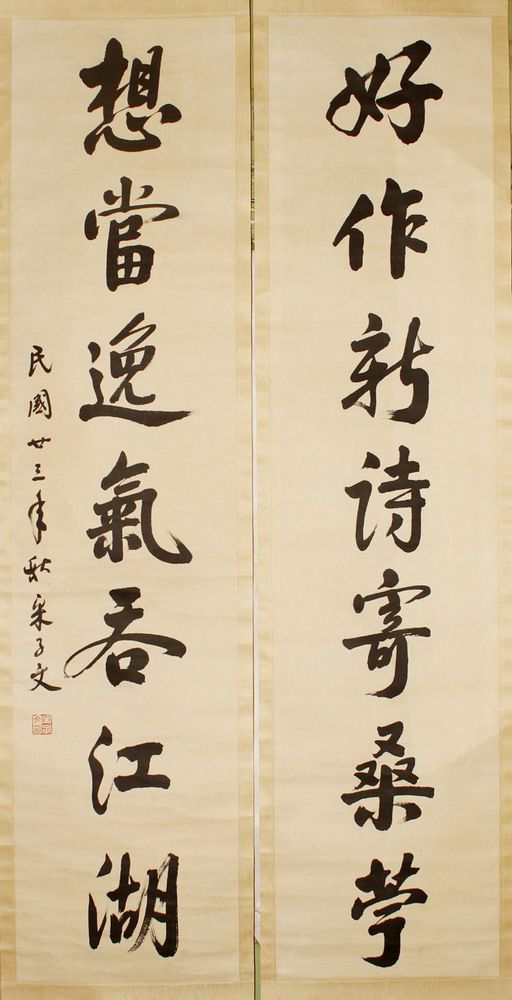 好作新詩寄桑苧
想當逸氣吞江湖
民國廿三年秋宋子文